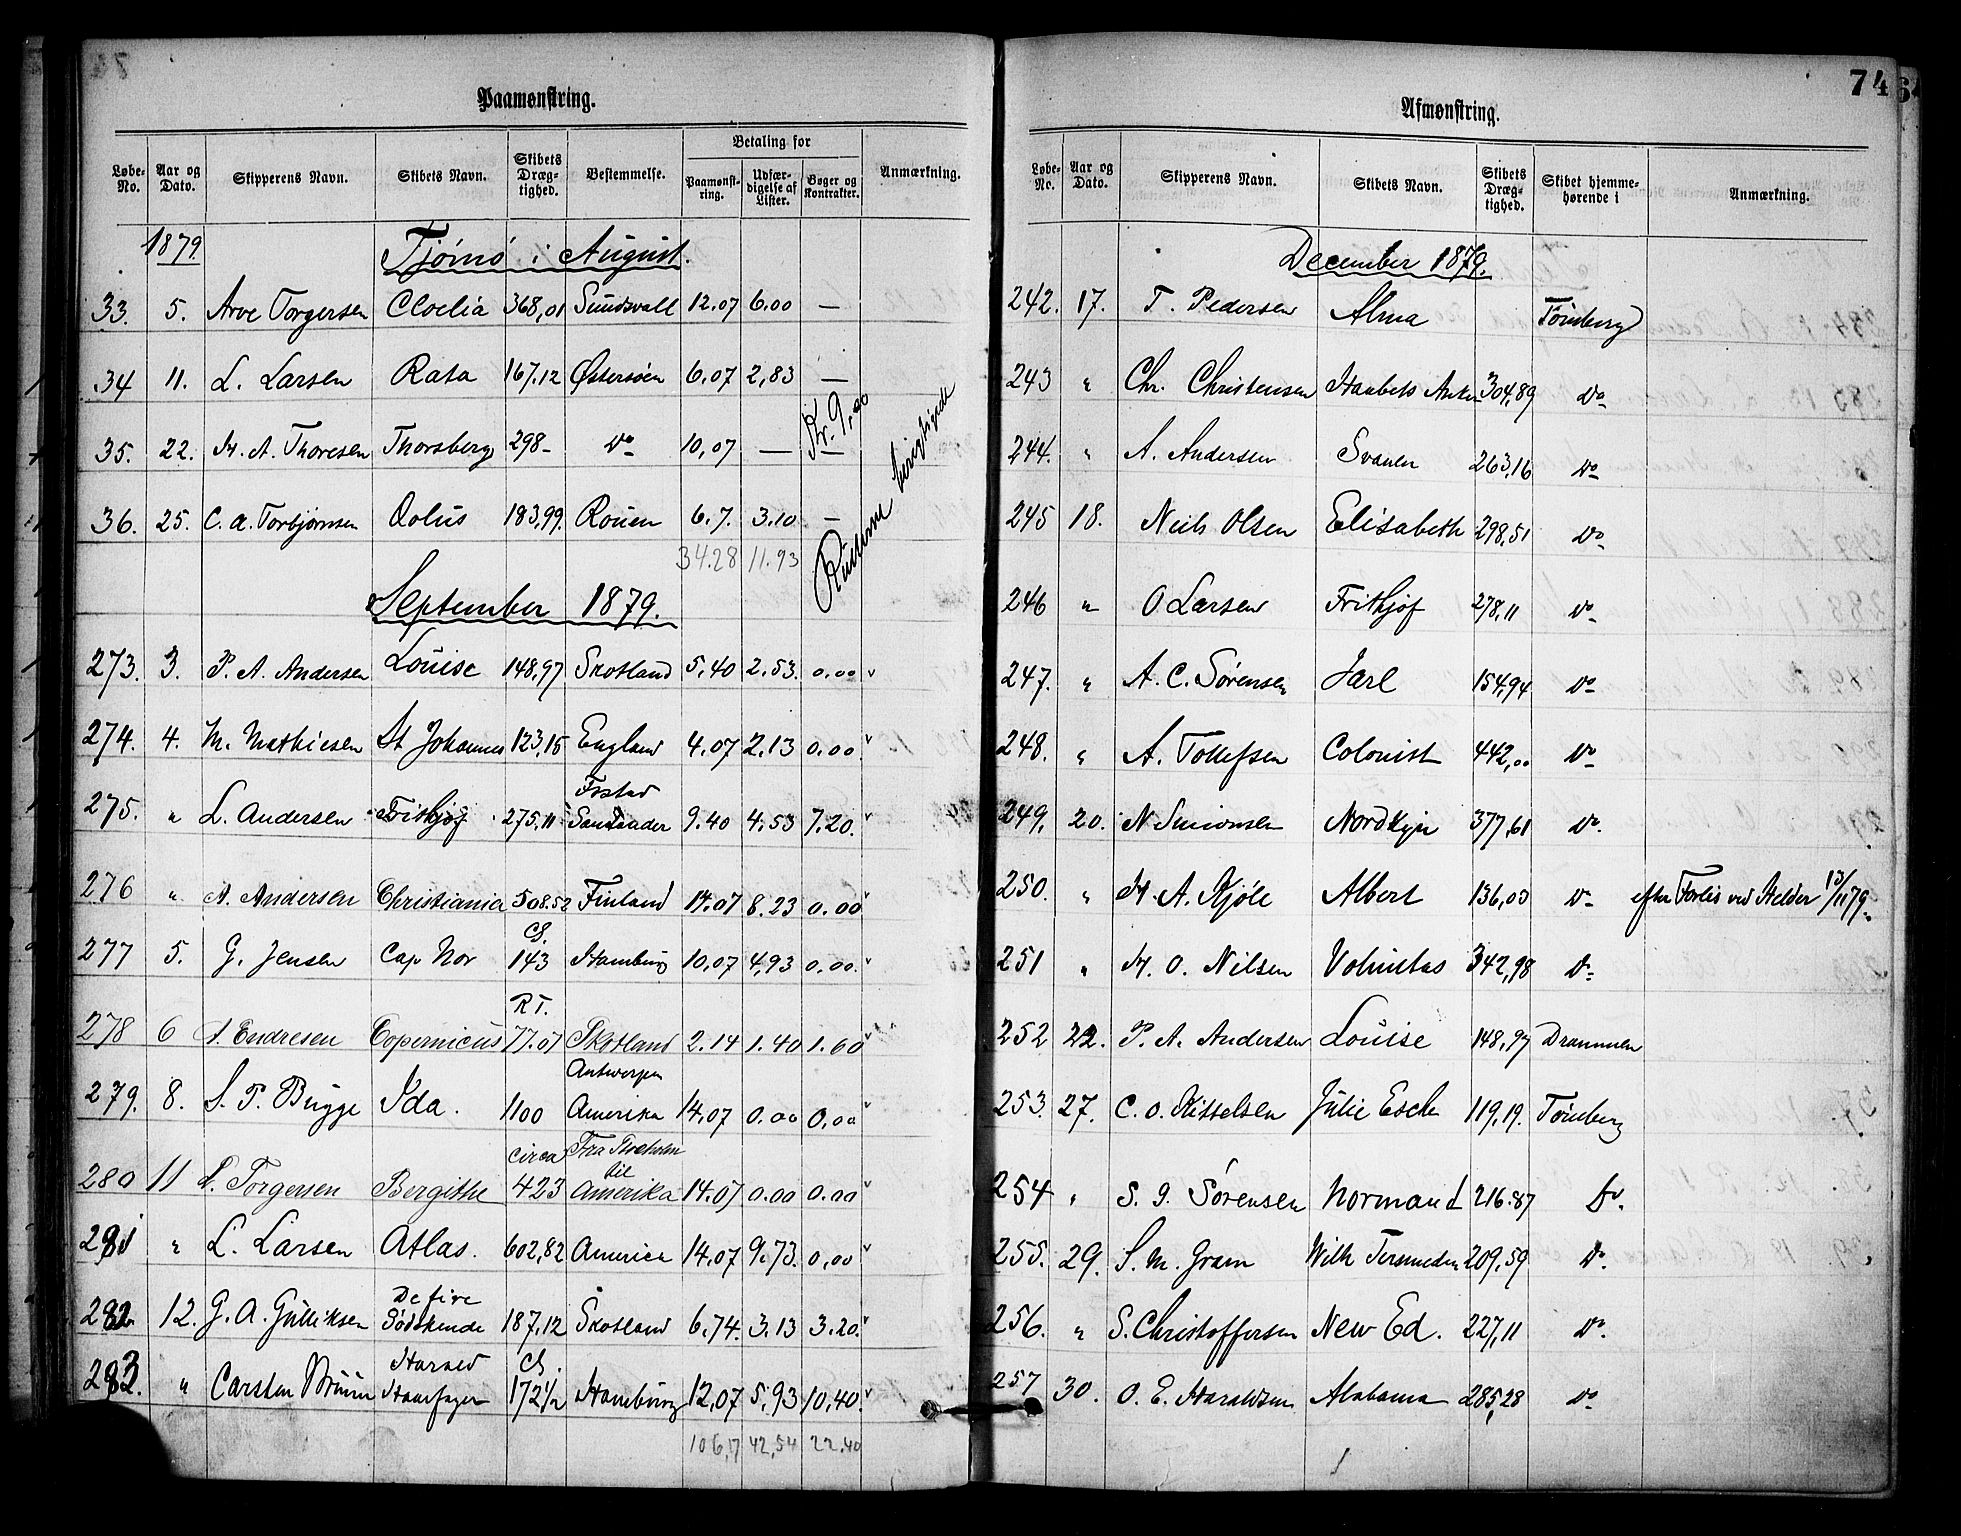 Paamønstring.
Løbe-No. Aar og Dato. Skipperens Navn. Skibets Navn. Skibets Dræg-tighed. Bestemmelse. Betaling for Paamønst-ring. Udfær-digelse af Lister. Bøger og Kontrakter. Anmærkning.
1879 Tjømø i August.
33. 5. Arve Torgersen Cloelia 368,01 Sundsvall 12.07 6.00 —
34 11. L. Larsen Rata 167.12 Østersøen 6.07 2,83 —
35. 22. H. A. Thoresen Thorsberg 298- Do 10,07 — —
Kr. 9,00
36. 25. C. A. Torbjørnsen Aolus 183,99. Rouen 6.7. 3.10 —
34.28 11.93
berigtigende
September 1879.
273. 3. P. A. Andersen Louise 148,97 Skotland 5,40 2.53. 0.00 v
274. 4. M. Mathiesen St Johannes 123,15 England 4.07 2.13 0.00 v
275. " L. Andersen Frithjof 275,11 Santander 9.40 4,53 7.20. v
276 " A. Andersen Christiania 508.52 Finland 14.07 8.23 0.00 v
277 5. G. Jensen Cap Nor Cl. 143 Hamburg 10,07 4,93 0,00. v
278 6 A. Endresen Copernicus RT. 77.07 Skotland 2.14 1.40 1.60 v
279. 8. S. P. Bugge Ida. 1100 Antwerpen Amerika 14,07 0.00 0,00 v
280 11 L. Torgersen Bergithe circa 423 Fra til Amerika 14.07 0.00 0.00 v
281 " L. Larsen Atlas. 602,82 America 14,07 9.73. 0,00 v
282 12. G. A. Gulliksen De fire Södskende 187,12 Skotland 6,74. 3.13 3.20. v
283. " Carsten Bruun Harald Haarfager Cl. 172 1/2 Hamburg 12,07 5,93 10,40. v
106,17 42,54 22.40
74
Afmønstring.
Løbe-No. Aar og Dato. Skipperens Navn. Skibets Navn. Skibets Dræg-tighed. Skibet hjemme-hørende i Anmærkning.
December 1879.
242. 17. T. Pedersen Alma Tønsberg
243 " Chr. Christensen Haabets Anker 304,89 Do
244. " A. Andersen Svanen 263,16 Do
245 18. Niels Olsen Elisabeth 298,51 Do
246 " O Larsen Frithjof 278,11 Do
247. " A. C. Sørensen Jarl 154,94 Do
248. " A. Tollefsen Colonist 442,00 Do
249. 20. N Simonsen Nordkyn 377,61 Do.
250. " H. A. Kjøle Albert 136,03 Do efter Forlis ved Helder 13/11 79.
251 " H. O. Nilsen Voluntas 342,98 Do
252 22. P. A. Andersen Louise 148,97 Drammen
253. 27. C. O. Kittelsen Julie Esch 119,19. Tønsberg
254 " S. J. Sørensen Normand 216.87 Do.
255. 29. S. M. Gram Wilh Tersmeden 209,59 Do.
256. " S. Christoffersen New Ed. 227,11 Do.
257 30. O. E. Haraldsen Alabama 285,28 Do